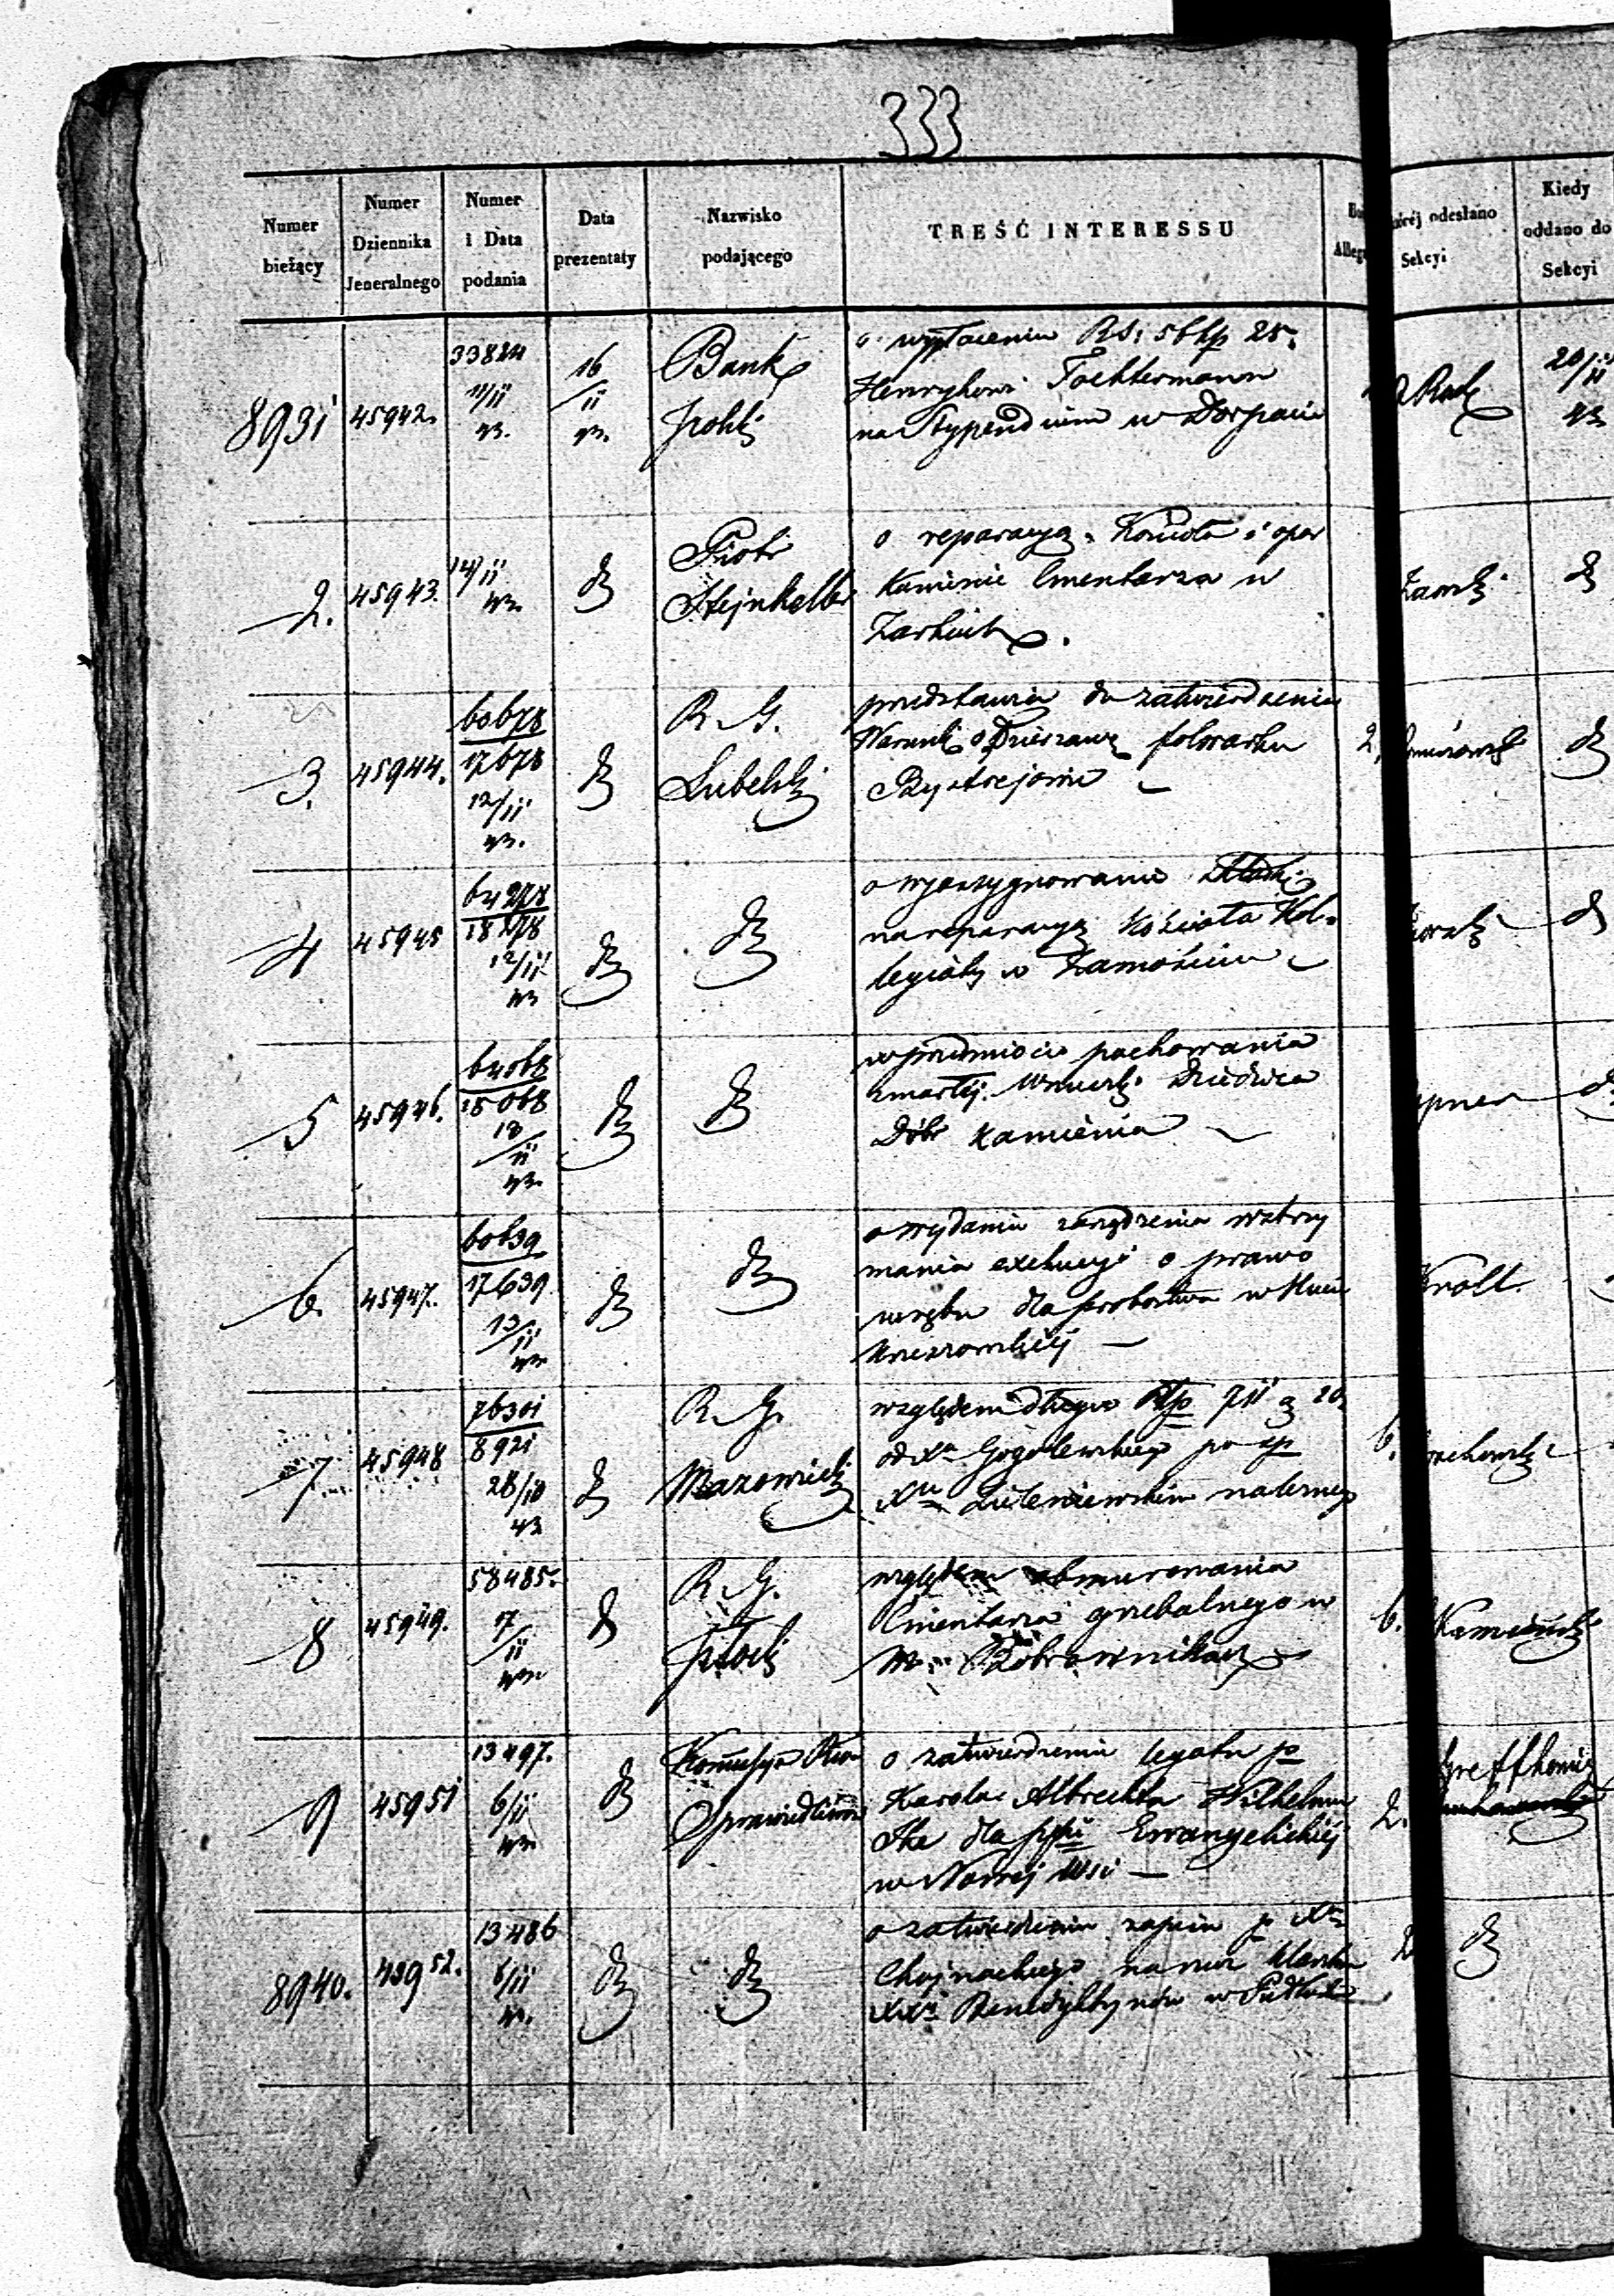 333
Numer bieżący
Numer Dziennika Jeneralnego
Numer i Data podania
Data prezentaty
Nazwisko podającego
TREŚĆ INTERESSU
odesłano Sekcyi
Kiedy oddano do Sekcyi
8931 45942. 33824 11/11 43. 16/11 43. Bank Polski
o wypłacenie RS: 56 kp 25.
Henrykowi
na Stypendium w Dorpacie
20/11 43
2. 45943. 14/11 43. d Piotr Stejnkeller
o reparacyą Kościoła i opar
kamienie Cmentarza w
Żarkach.
d
3. 45944. 60678 17678 12/11 43. d R. G. Lubelski
przedstawia do zatwierdzenia
Warunki o Dzierżawę folwarku
Bystrzejowice
2, d
4 45945 64278 18278 12/11 43 d d
o wyassygnowanie Składki
na reparacyą kościoła Kol-
legiaty w Zamościu
d
5 45946. 64068 18068 13/11 43. d d
w przedmiocie pochowania
zmarłej Dziedzica
Dóbr Kamienia
d
6. 45947. 60639 17639 13/11 43 d d
o wydanie zarządzenia wstrzy
mania exekucyi o prawo
wrębu dla probostwa w
Krzeszowskiej
Kroll.
7 45948 76301 8921 28/10 43 d R. G. Mazowiecki
względem długu 711 g 20
od Xa Gogolewskiego po śp
Xu należnego
6.
8 45949. 58485. 17/11 43 d R. G. Płocki
względem obmurowania
Cmentarza grzebalnego w
m. Bobrownikach
6. Kamieński
9 45951 13497. 6/11 43. d Kommissya Rzą Sprawiedliwości
o zatwierdzenie legatu p
Karola Albrechta Wilhelma
dla Ewangelickiej
w Nowej Wsi
2.
8940. 45952. 13486 6/11 43. d d
o zatwierdzenie zapisu p Xa
Chojnackiego na rzecz Klasztoru
XXy Benedyktynów w Pułtusku
2 d